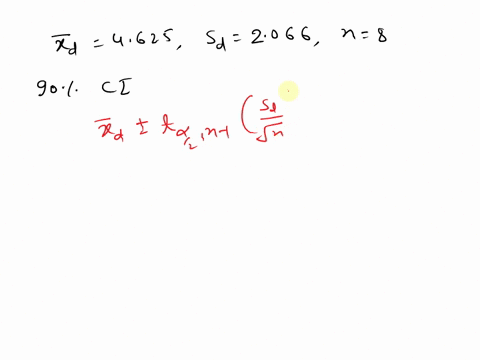 x̄d = 4.625, Sd = 2.066, n = 8
90% CI
x̄d ± tα/2, n-1 (Sd/√n